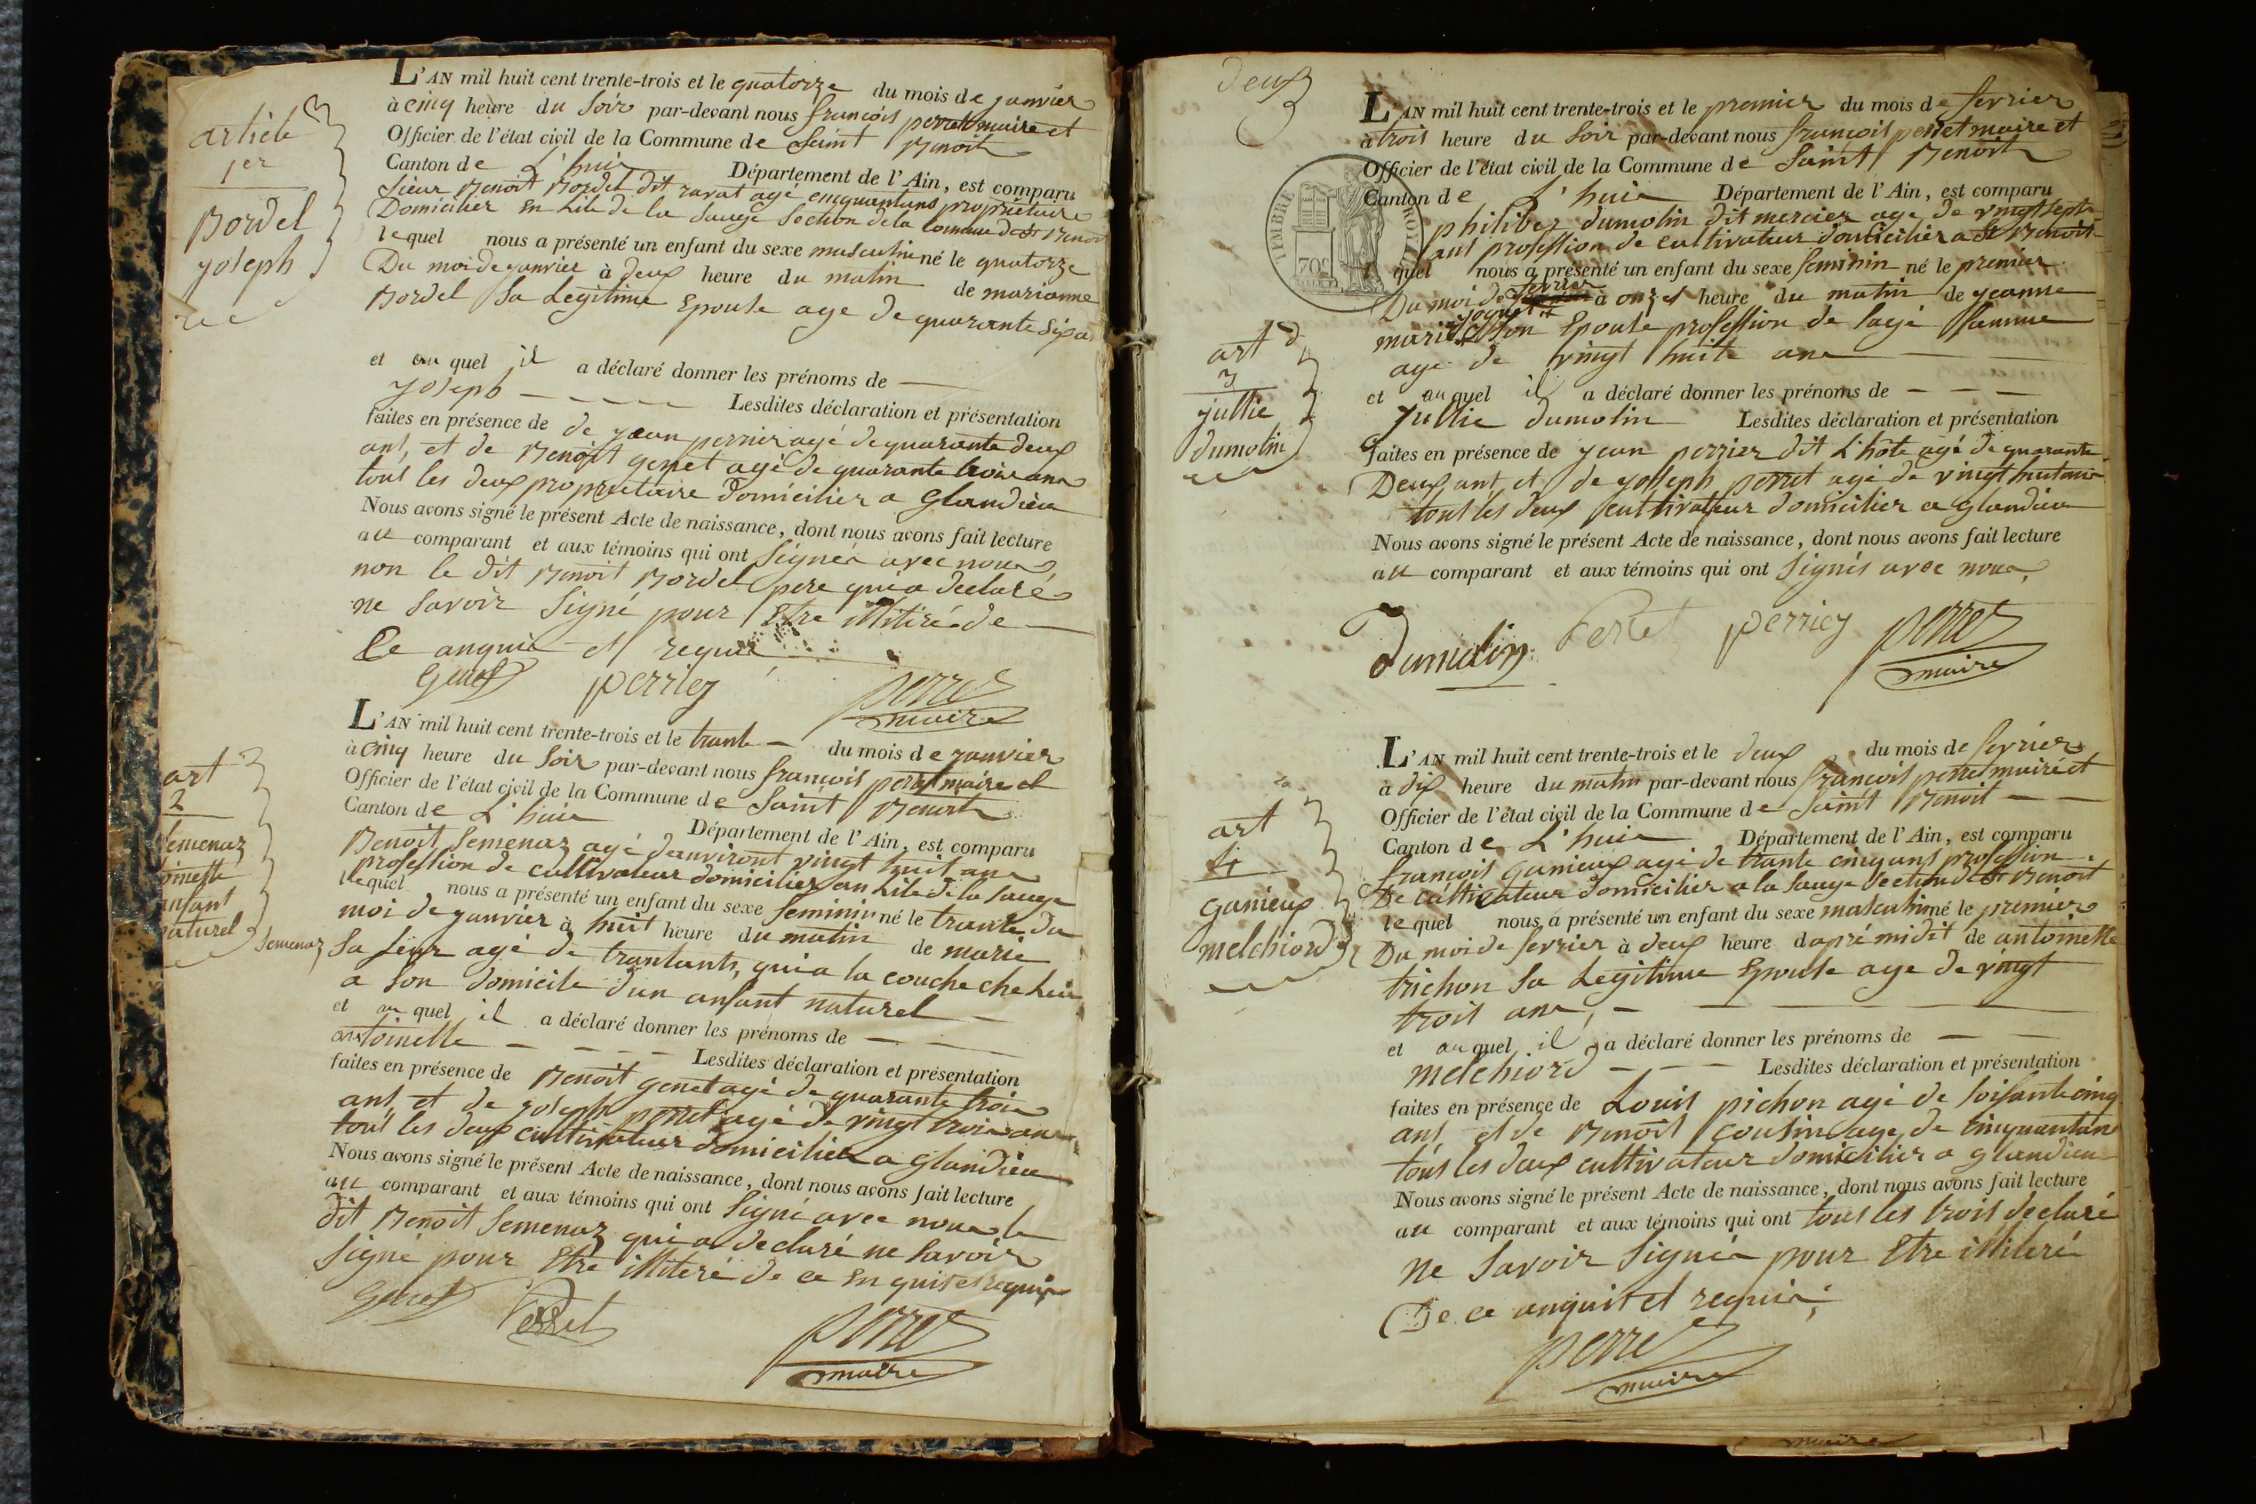 article
1er
Bordel
joseph
L'AN mil huit cent trente-trois et le quatorze du mois de janvier
à cinq heure du soir par-devant nous françois perret maire et
Officier de l'état civil de la Commune de Saint Benoit
Canton de L'huis Département de l'Ain, est comparu
Sieur Benoit Bordel dit ravat agé cinquantans propriétaire
Domicilier en Lile de la Sauge Section de la Commune de St Benoit
lequel nous a présenté un enfant du sexe masculin né le quatorze
Du moi de janvier à deux heure du matin de marianne
Bordel Sa Legitime Epouse age de quarante six a
et au quel il a déclaré donner les prénoms de
joseph Lesdites déclaration et présentation
faites en présence de de jean perrier agé de quarante deux
ans, et de Benoit genet agé de quarante trois ans
tous les deux propriétaire domicilier a glandieu
Nous avons signé le présent Acte de naissance, dont nous avons fait lecture
au comparant et aux témoins qui ont Signés avec nous
non le dit Benoit Bordel pere qui a declaré
ne Savoir Signé pour Etre illitiré de
Ce anquis et requis
Genet perrier perret
maire
art
2
Semenaz
toinette
enfant
naturel
L'AN mil huit cent trente-trois et le trante du mois de janvier
à cinq heure du Soir par-devant nous françois perret maire et
Officier de l'état civil de la Commune de Saint Benoit
Canton de L'huis Département de l'Ain, est comparu
Benoit Semenaz agé danviront vingt huit ans
profession de cultivateur domicilier en Lile de la Sauge
lequel nous a présenté un enfant du sexe feminin né le trante du
moi de janvier à huit heure du matin de marie
Semenaz Sa Seur agé de trantants, qui a la couche che lui
a Son domicile d'un anfant naturel
et au quel il a déclaré donner les prénoms de
antoinette Lesdites déclaration et présentation
faites en présence de Benoit genet agé de quarante trois
ans et de joseph perret agé de vingt trois ans
tous les deux cultivateur domicilier a glandieu
Nous avons signé le présent Acte de naissance, dont nous avons fait lecture
au comparant et aux témoins qui ont Signé avec nous le
dit Benoit Semenaz qui a declaré ne Savoir
Signé pour Etre illiteré de ce En quis et requis
Genet Perret perret
maire
Deux
TIMBRE ROYAL
70c
art
3
jullie
dumolin
L'AN mil huit cent trente-trois et le premier du mois de fevrier
à trois heure du Soir par-devant nous françois perret maire et
Officier de l'état civil de la Commune de Saint Benoit
Canton de L'huis Département de l'Ain, est comparu
philiber dumolin dit mercier age de vingt sept
ans profession de cultivateur domicilier a St Benoit
le quel nous a présenté un enfant du sexe feminin né le premier
Du moi de fevrier à onze heure du matin de jeanne
marie Son Epouse profession de sage famme
age de vingt huite ans
et au quel il a déclaré donner les prénoms de
Jullie dumolin Lesdites déclaration et présentation
faites en présence de jean perrier dit L'hôte agé de quarante
Deux ans, et de josseph perret agé de vingt huit ans
tous les deux cultivateur domicilier a glandieu
Nous avons signé le présent Acte de naissance, dont nous avons fait lecture
au comparant et aux témoins qui ont Signés avec nous,
Dumolin Perret perrier perret
maire
art
4
ganieux
melchiord
L'AN mil huit cent trente-trois et le deux du mois de fevrier
à dix heure du matin par-devant nous françois perret maire et
Officier de l'état civil de la Commune de Saint Benoit
Canton de L'huis Département de l'Ain, est comparu
françois Ganieux agé de trante cinq ans profession
De cultivateur domicilier a la Sauge Section de St Benoit
le quel nous a présenté un enfant du sexe masculin né le premier
Du moi de fevrier à deux heure dapré midit de antoinette
trichon Sa Legitime Epouse age de vingt
trois ans,
et au quel il a déclaré donner les prénoms de
melchiord Lesdites déclaration et présentation
faites en présence de Louis pichon agé de soisante cinq
ans et de Benoit Cousin age de cinquantan
tous les deux cultivateur domicilier a glandieu
Nous avons signé le présent Acte de naissance, dont nous avons fait lecture
au comparant et aux témoins qui ont tous les trois declaré
ne Savoir Signés pour Etre illiteré
De ce anquis et requis;
perret
maire
maire